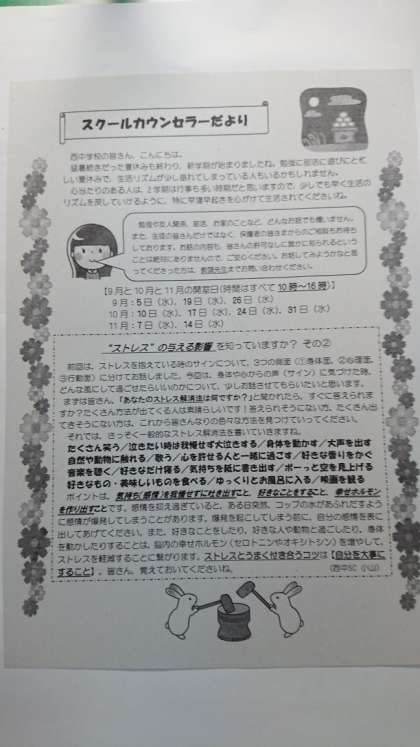 スクールカウンセラーだより
西中学校の皆さん、こんにちは。
猛暑続きだった夏休みも終わり、新学期が始まりましたね。勉強に部活に遊びにと忙
しい夏休みで、生活リズムが少し崩れてしまっている人もいるかもしれません。
心当たりのある人は、2学期は行事も多い時期だと思いますので、少しでも早く生活の
リズムを戻していけるように、特に早寝早起きを心がけて生活されてくださいね。
勉強や友人関係、部活、お家のことなど、どんなお話でも構いません。
また、生徒の皆さんだけではなく、保護者の皆さまからのご相談もお待ち
しております。お話の内容も、皆さんの許可なしに誰かに知られるという
ことは絶対にありませんので、ご安心ください。お話してみようかなと思
ってくださった方は、教頭先生までお問い合わせください。
【9月と10月と11月の開室日(時間はすべて10時~16時)】
9月:5日(水)、19日(水)、26日(水)
10月:10日(水)、17日(水)、24日(水)、31日(水)
11月:7日(水)、14日(水)
“ストレス”の与える影響を知っていますか? その②
前回は、ストレスを抱えている時のサインについて、3つの側面(①身体面、②心理面、
③行動面)に分けてお話しました。今回は、身体や心からの声(サイン)に気づけた時、
どんな風にして過ごせたらいいのかについて、少しお話させてもらいたいと思います。
まずは皆さん、「あなたのストレス解消法は何ですか?」と聞かれたら、すぐに答えられま
すか?たくさん方法が出てくる人は素晴らしいです!答えられそうにない方、たくさん出
てきそうにない方は、これから皆さんなりの色々な方法を見つけていってください。
それでは、さっそく一般的なストレス解消法を書いていきますね。
たくさん笑う/泣きたい時は我慢せず大泣きする/身体を動かす/大声を出す
自然や動物に触れる/歌う/心を許せる人と一緒に過ごす/好きな香りをかぐ
音楽を聴く/好きなだけ寝る/気持ちを紙に書き出す/ボーっと空を見上げる
好きなもの・美味しいものを食べる/ゆっくりとお風呂に入る/映画を観る
ポイントは、気持ち(感情)を我慢せずに吐き出すこと、好きなことをすること、幸せホルモン
を作り出すことです。感情を抑え過ぎていると、ある日突然、コップの水があふれだすよう
に感情が爆発してしまうことがあります。爆発を起こしてしまう前に、自分の感情を表に
出してあげてください。また、好きなことをしたり、好きな人や動物と過ごしたり、身体
を動かしたりすることは、脳内の幸せホルモン(セロトニンやオキシトシン)を増やして、
ストレスを軽減することに繋がります。ストレスとうまく付き合うコツは【自分を大事に
すること】。皆さん、覚えておいてくださいね。
(西中SC 小山)